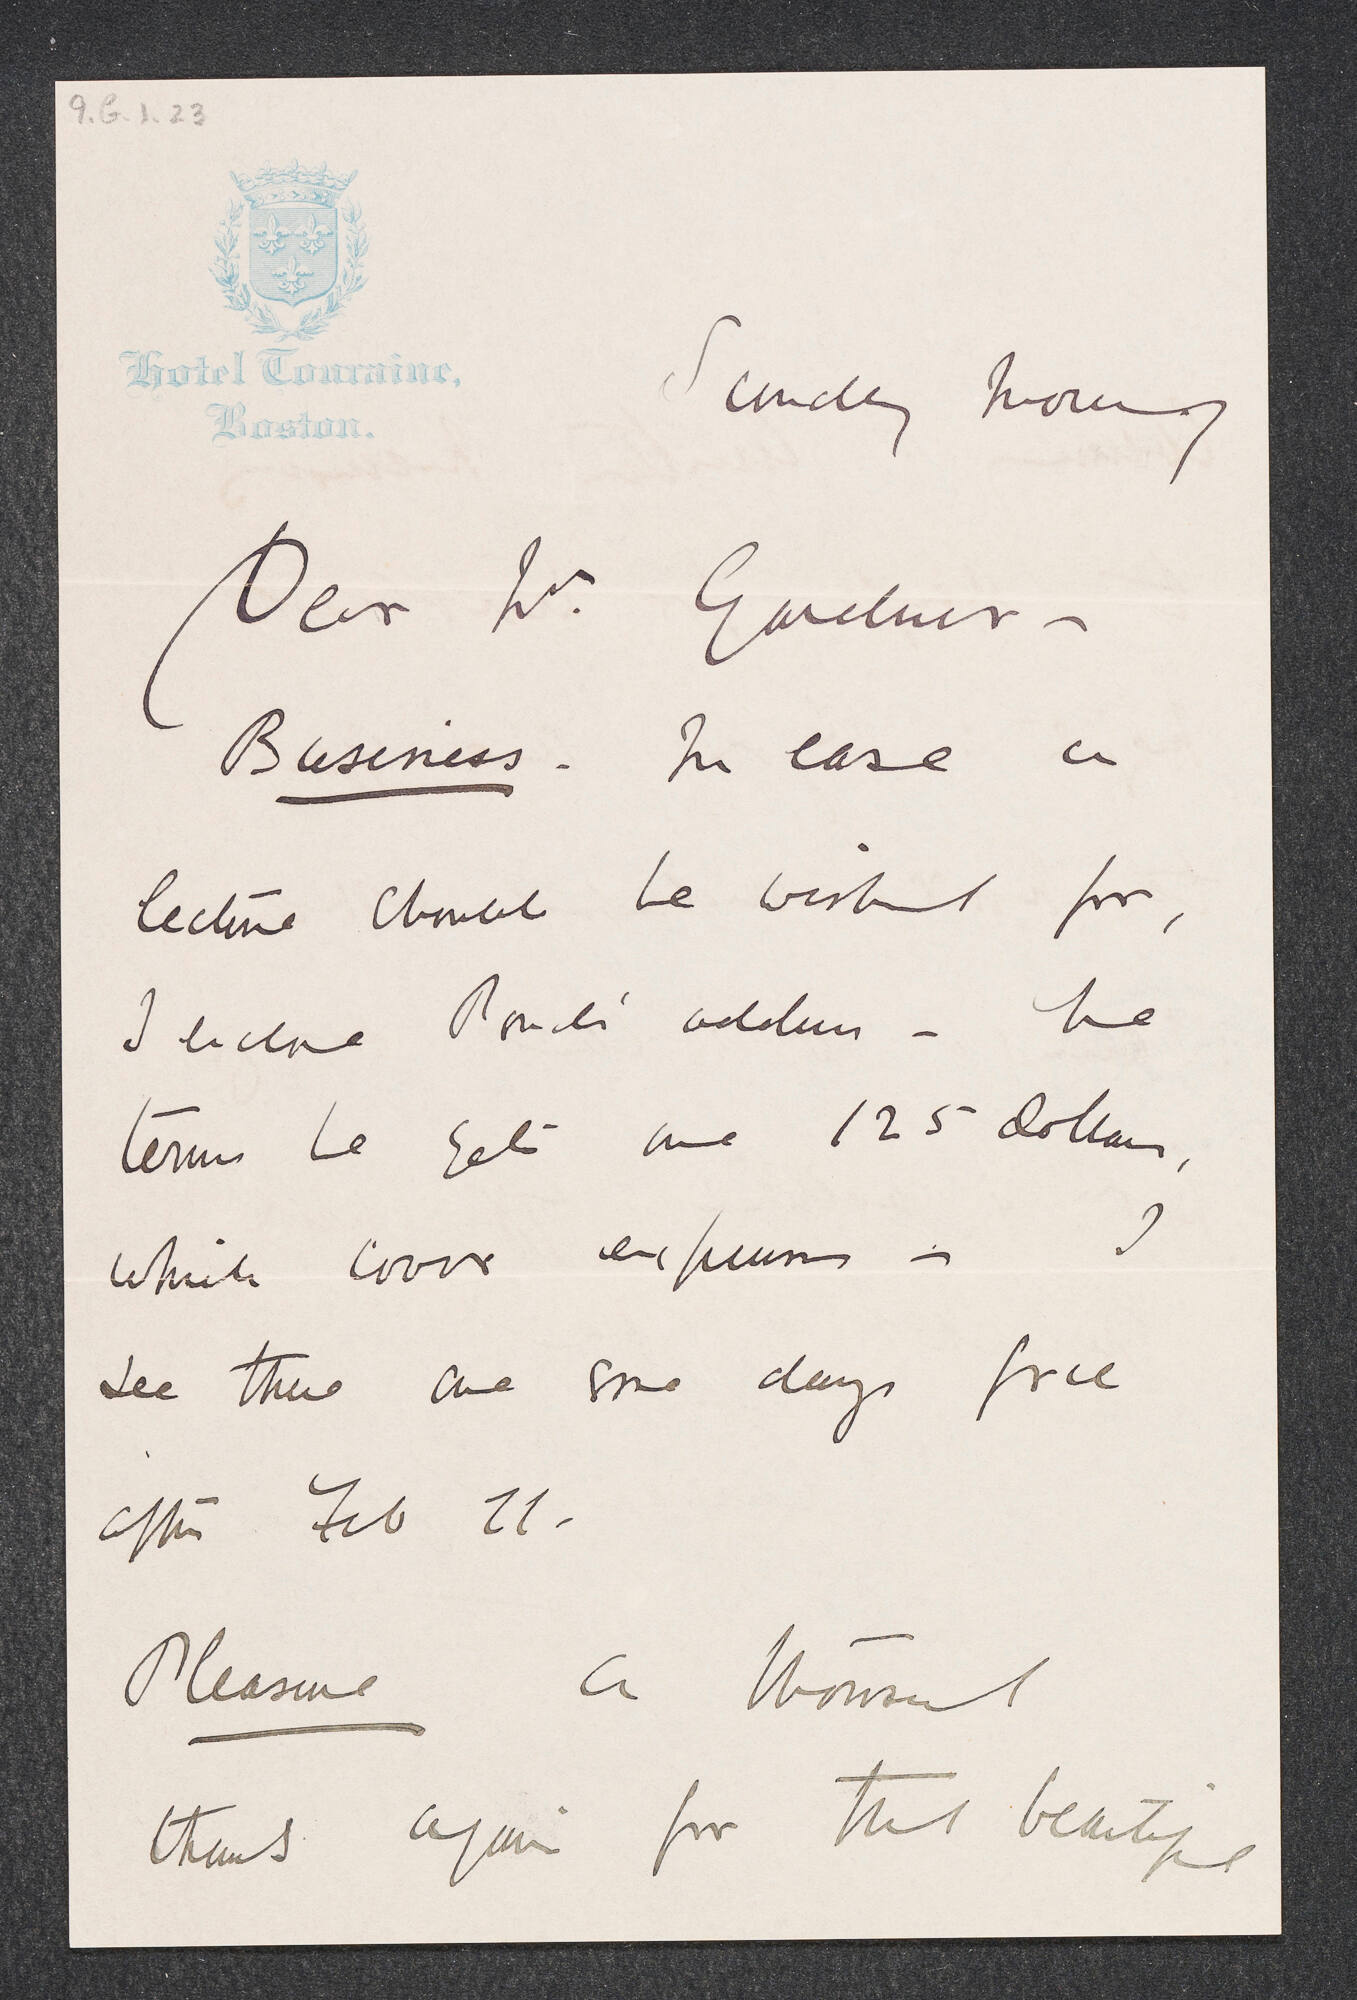 9.G.1.23
Hotel Touraine,
Boston.
Sunday Morning
Dear Mrs. Gardner –
Business – In case a
lecture should be wished for,
I enclose Pond's address – the
terms he gets are 125 dollars,
which cover expenses – I
see there are some days free
after Feb 21.
Pleasure a thousand
thanks again for that beautiful